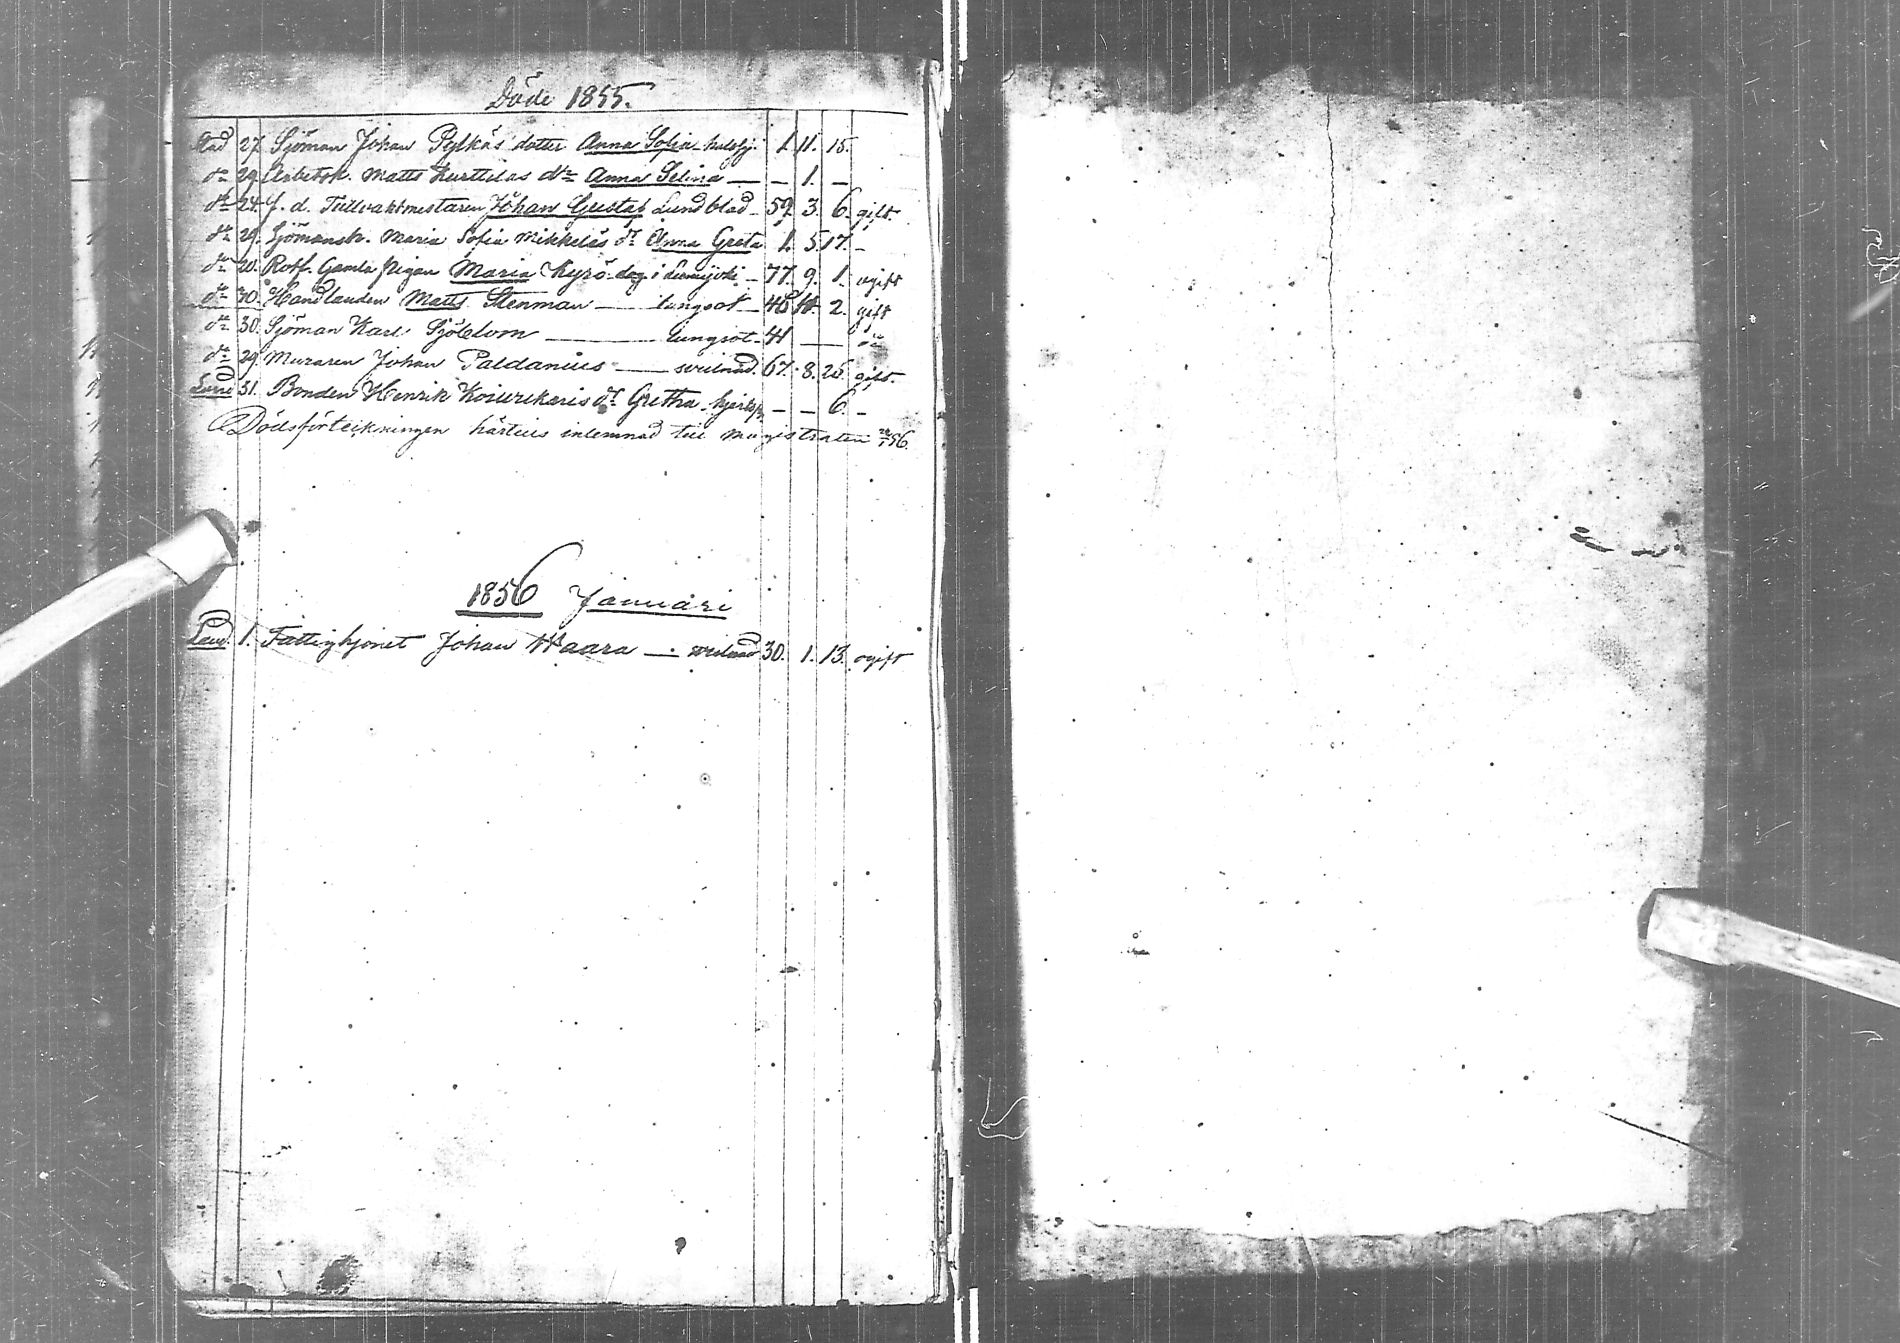 Döde 1855.
Stad 27. Sjöman Johan Pylkäs dotter Anna Sofia 1. 11. 15.
dto 29. Arbetsk. Matts Kurttilas dtr Anna Selina — — 1. —
dto 24. f. d. Tullvaktmestaren Johan Gustaf Lundblad — 59. 3. 6. gift
dto 29. Sjömansk. Maria Sofia Mikkeläs dr Anna Greta 1. 5. 17. —
dto 20. Rotf. Gamla pigan Maria Kyrö i — 77. 9. 1. ogift
dto 30. Handlanden Matts Stenman — lungsot — 2. gift
dto 30. Sjöman Karl — lungsot — 41 — dto
dto 29. Muraren Johan Paldanius — svulnad. 67. 8. 25. gift.
Land 31. Bonden Henrik dr Gretha — — 6. —
Dödsförteckningen härtills inlemnad till Magistraten 56.
1856 Januari
Land. 1. Fattighjonet Johan Waara — svulnad 30. 1. 13. ogift